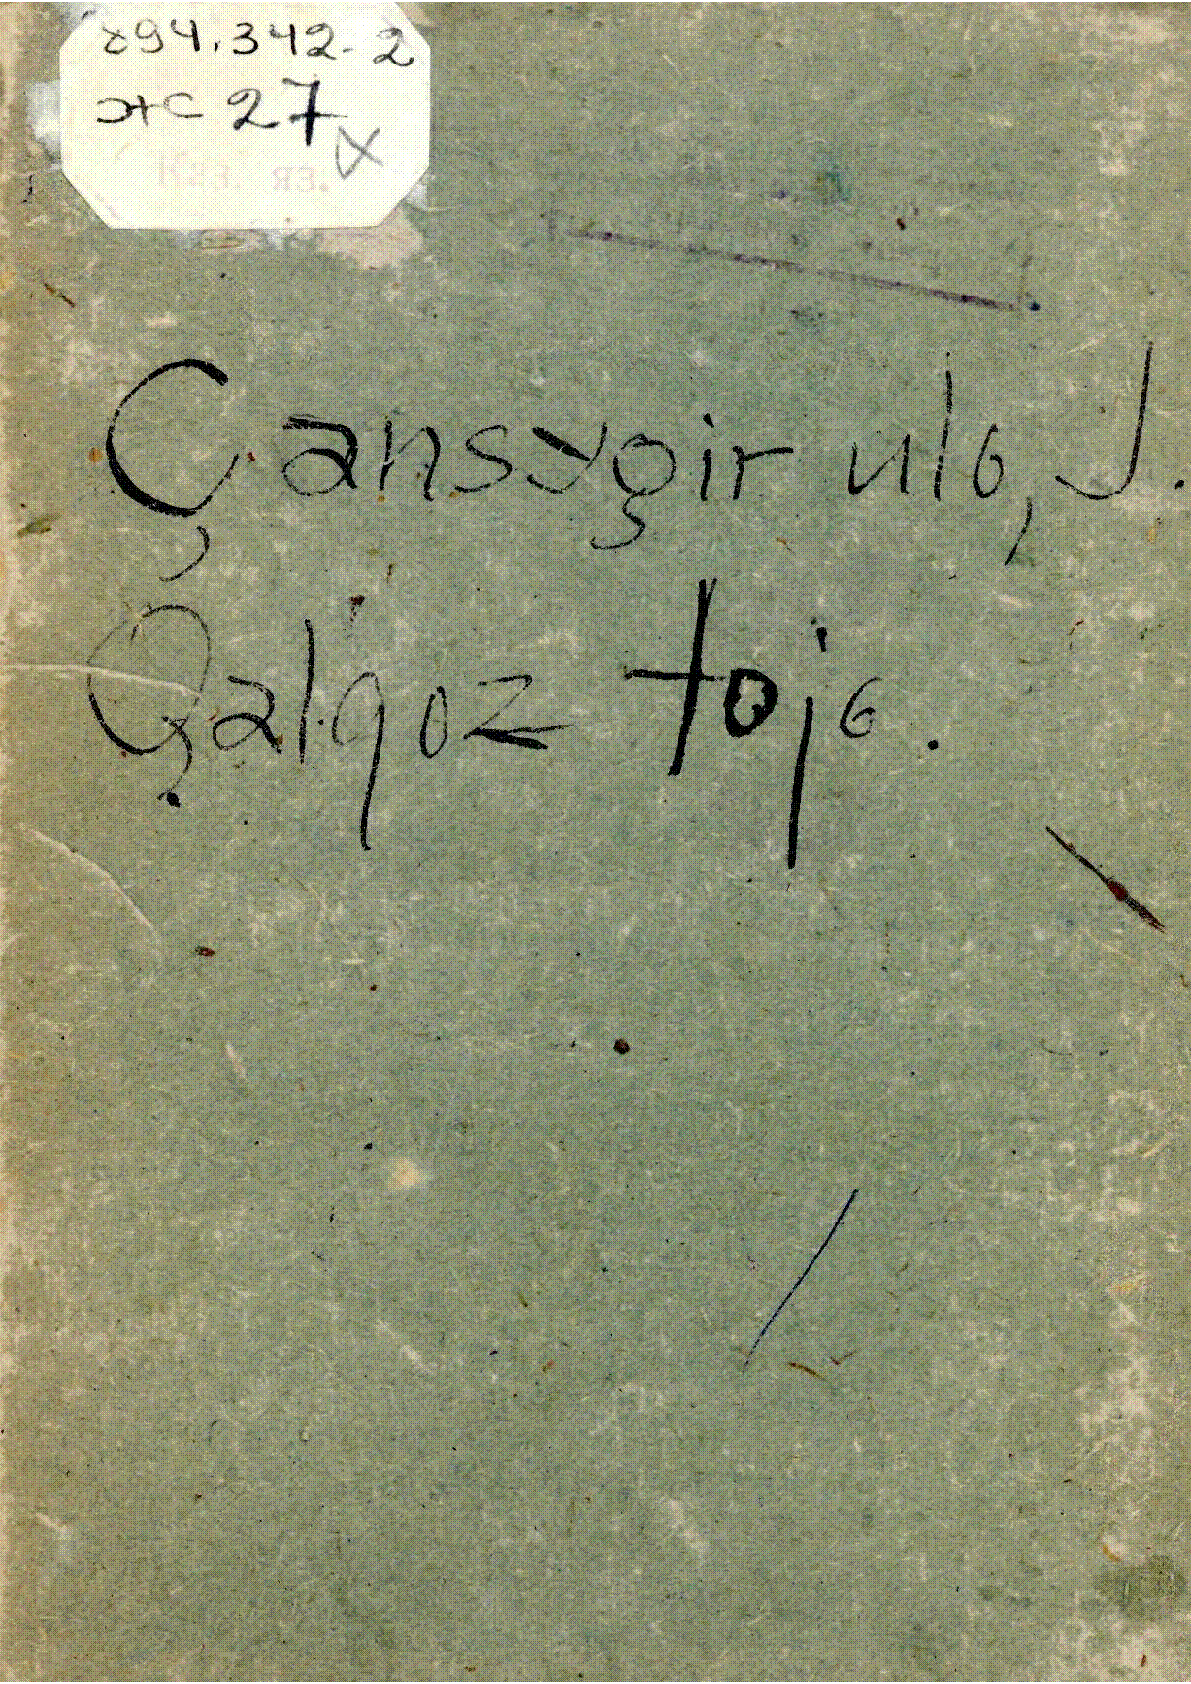 894.342-2
Ж 27
Каз. яз.
Çansygir ulь, J.
Qalqoz tojь.